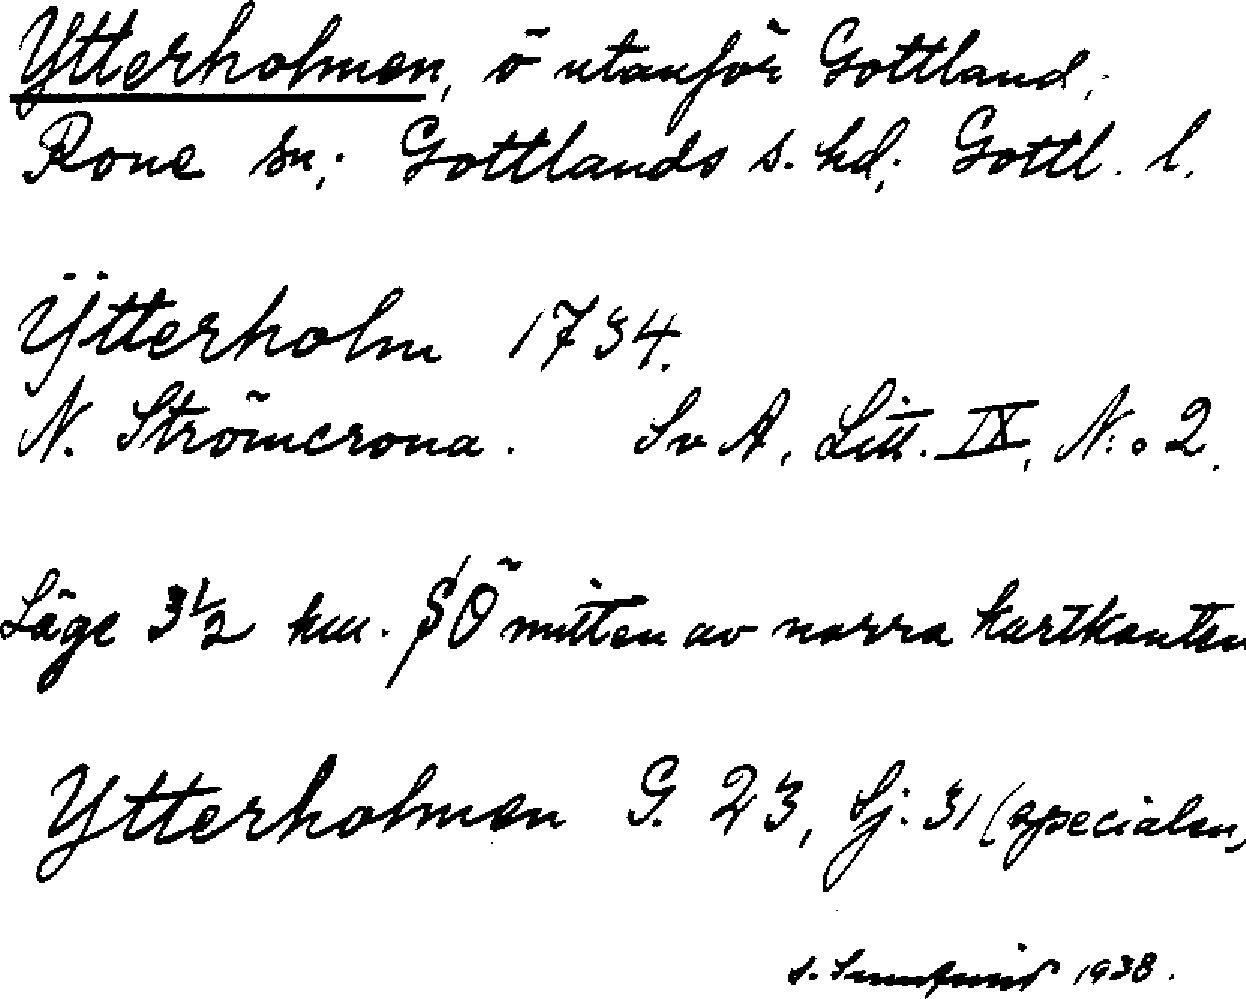 Ytterholmen, ö utanför Gottland;
Rone sn; Gottlands s. hd; Gottl. l.
Ÿtterholm 1734.
N. Strömcrona. Sv A, Litt. IX, N:o 2.
Läge 3 1/2 km. SÖ mitten av norra kartkanten
Ytterholmen G. 23, Sj: 31 (specialen)
S. 1938.